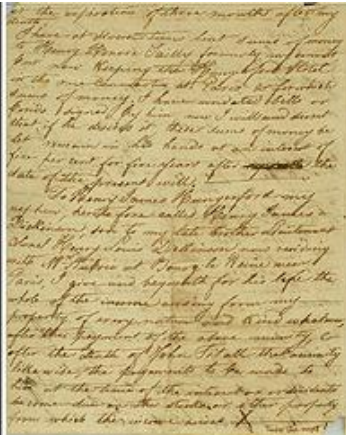 at the expiration of three months after my
death.
I have at divers times lent sums of money
to Henry Honore Sailly formerly my servant
but now keeping the Hungerford Hotel
in the rue Caumartin at Paris & for which
sums of money I have undated bills or
bonds signed by him. Now I will and direct
that if he desires it these sums of money be
let remain in his hands at an interest of
five per cent for five years after the
date of the present will.
To Henry James Hungerford my
nephew heretofore called Henry James
Dickinson, son to my late brother Lieutenant
Colonel Henry Louis Dickinson now residing
with Mr Auboin at Bourg la Reine near
Paris, I give and bequeath for his life the
whole of the income arising from my
property of every nature and kind whatever,
after the payment of the above annuity, &
after the death of John Fitall that annuity
likewise, the payments to be made to
him at the time of the interest or dividends
become due on the stocks or other property
from which the income arises. X